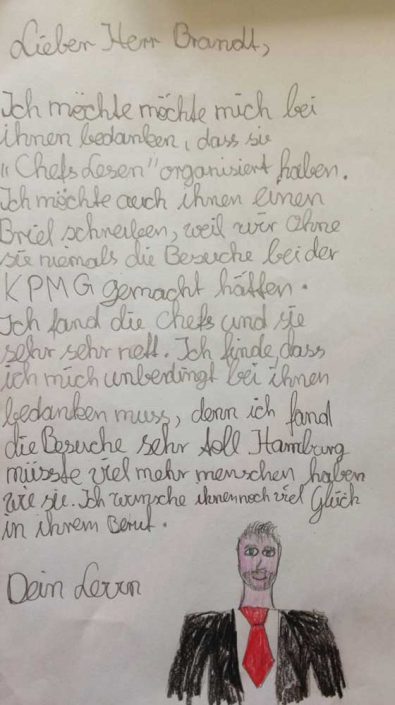 Lieber Herr Brandt,
Ich möchte möchte mich bei
ihnen bedanken, dass sie
"Chefs Lesen" organisiert haben.
Ich möchte auch ihnen einen
Brief schreiben, weil wir ohne
sie niemals die Besuche bei der
KPMG gemacht hätten.
Ich fand die Chefs und sie
sehr sehr nett. Ich finde, dass
ich mich unbedingt bei ihnen
bedanken muss, denn ich fand
die Besuche sehr toll Hamburg
müsste viel mehr menschen haben
wie sie. Ich wünsche ihnen noch viel Glück
in ihrem Beruf.
Dein